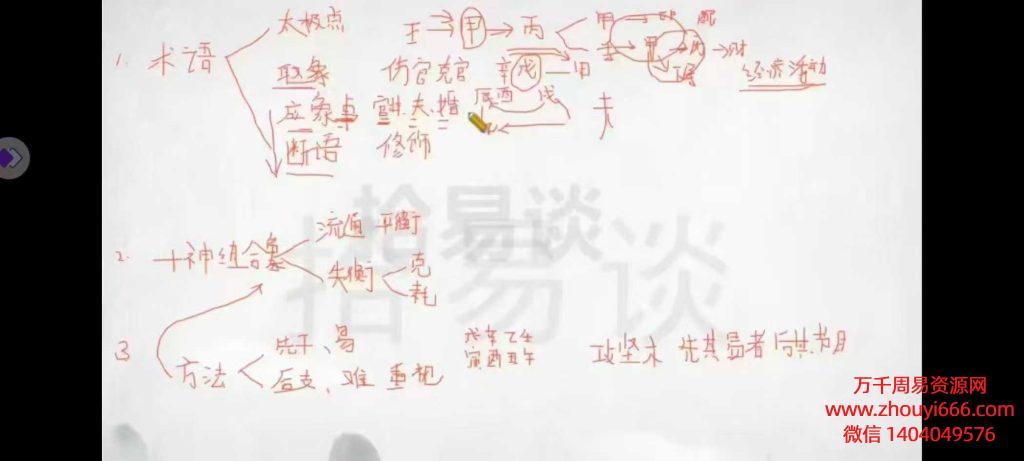 1. 术语
太极点 壬 甲 丙 甲
取象 伤官克官 辛 戊 甲 丙 财 经济活动
应象点 官 夫 婚 辰酉 戌 夫
断语 修饰
2. 十神组合象
流通 平衡
失衡 克
耗
3 方法
先干、易 戊辛乙壬
后支、难 重视 寅酉丑午
攻坚木 先其易者 后其节目
拾易谈
拾易谈
万千周易资源网
www.zhouyi666.com
微信 1404049576